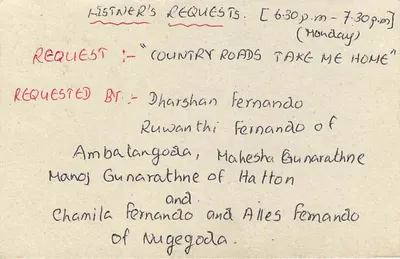 LISTNER'S REQUESTS. [6.30 p.m - 7.30 p.m]
(Monday)
REQUEST :- "COUNTRY ROADS TAKE ME HOME"
REQUESTED BY :- Dharshan Fernando
Ruwanthi Fernando of
Ambalangoda, Mahesha Gunarathne
Manoj Gunarathne of Hatton
and
Chamila Fernando and Alles Fernando
of Nugegoda.